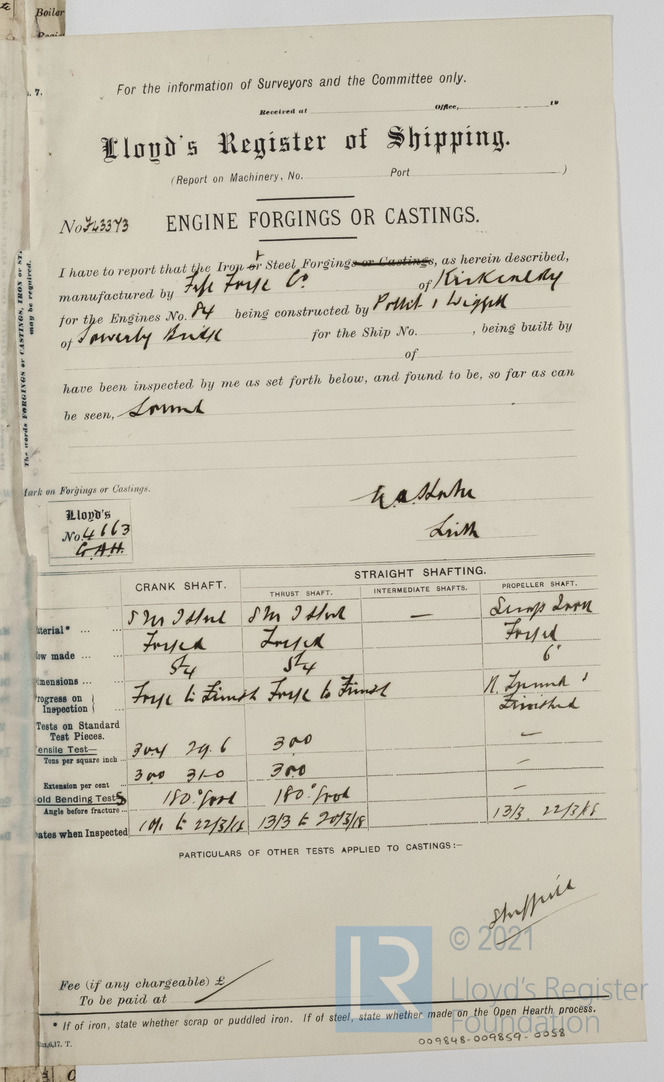 Boiler
For the information of Surveyors and the Committee only.
Received at Office, 19
Lloyd's Register of Shipping.
(Report on Machinery, No. Port )
No 43373 ENGINE FORGINGS OR CASTINGS.
I have to report that the Iron or Steel Forgings or Castings, as herein described,
manufactured by Fife Forge Co of Kirkcaldy
for the Engines No. 84 being constructed by Pollit & Wigzell
of Sowerby Bridge for the Ship No. , being built by
of
have been inspected by me as set forth below, and found to be, so far as can
be seen, Sound
The words FORGINGS or CASTINGS, IRON or ST
may be required.
Mark on Forgings or Castings.
Leith
Lloyd's
No. 4663
G.A.H.
CRANK SHAFT. STRAIGHT SHAFTING.
THRUST SHAFT. INTERMEDIATE SHAFTS. PROPELLER SHAFT.
aterial* ... S M I Steel S M I Steel — Scrap Iron
ow made ... Forged Forged Forged
imensions ... 5¼ 5¼ 6"
rogress on Inspection Forge to Finish Forge to Finish R. Turned & Finished
Tests on Standard
Test Pieces.
ensile Test— 30.4 29.6 30.0 —
Tons per square inch
Extension per cent 30.0 31.0 30.0 —
old Bending Tests 180° Good 180° Good —
Angle before fracture
ates when Inspected 10/1 to 22/3/18 13/3 to 20/3/18 13/3 22/3/18
PARTICULARS OF OTHER TESTS APPLIED TO CASTINGS:—
Sheffield
© 2021
Lloyd's Register
Foundation
Fee (if any chargeable) £
To be paid at
* If of iron, state whether scrap or puddled iron. If of steel, state whether made on the Open Hearth process.
6,17. T.
009848-009859-0058